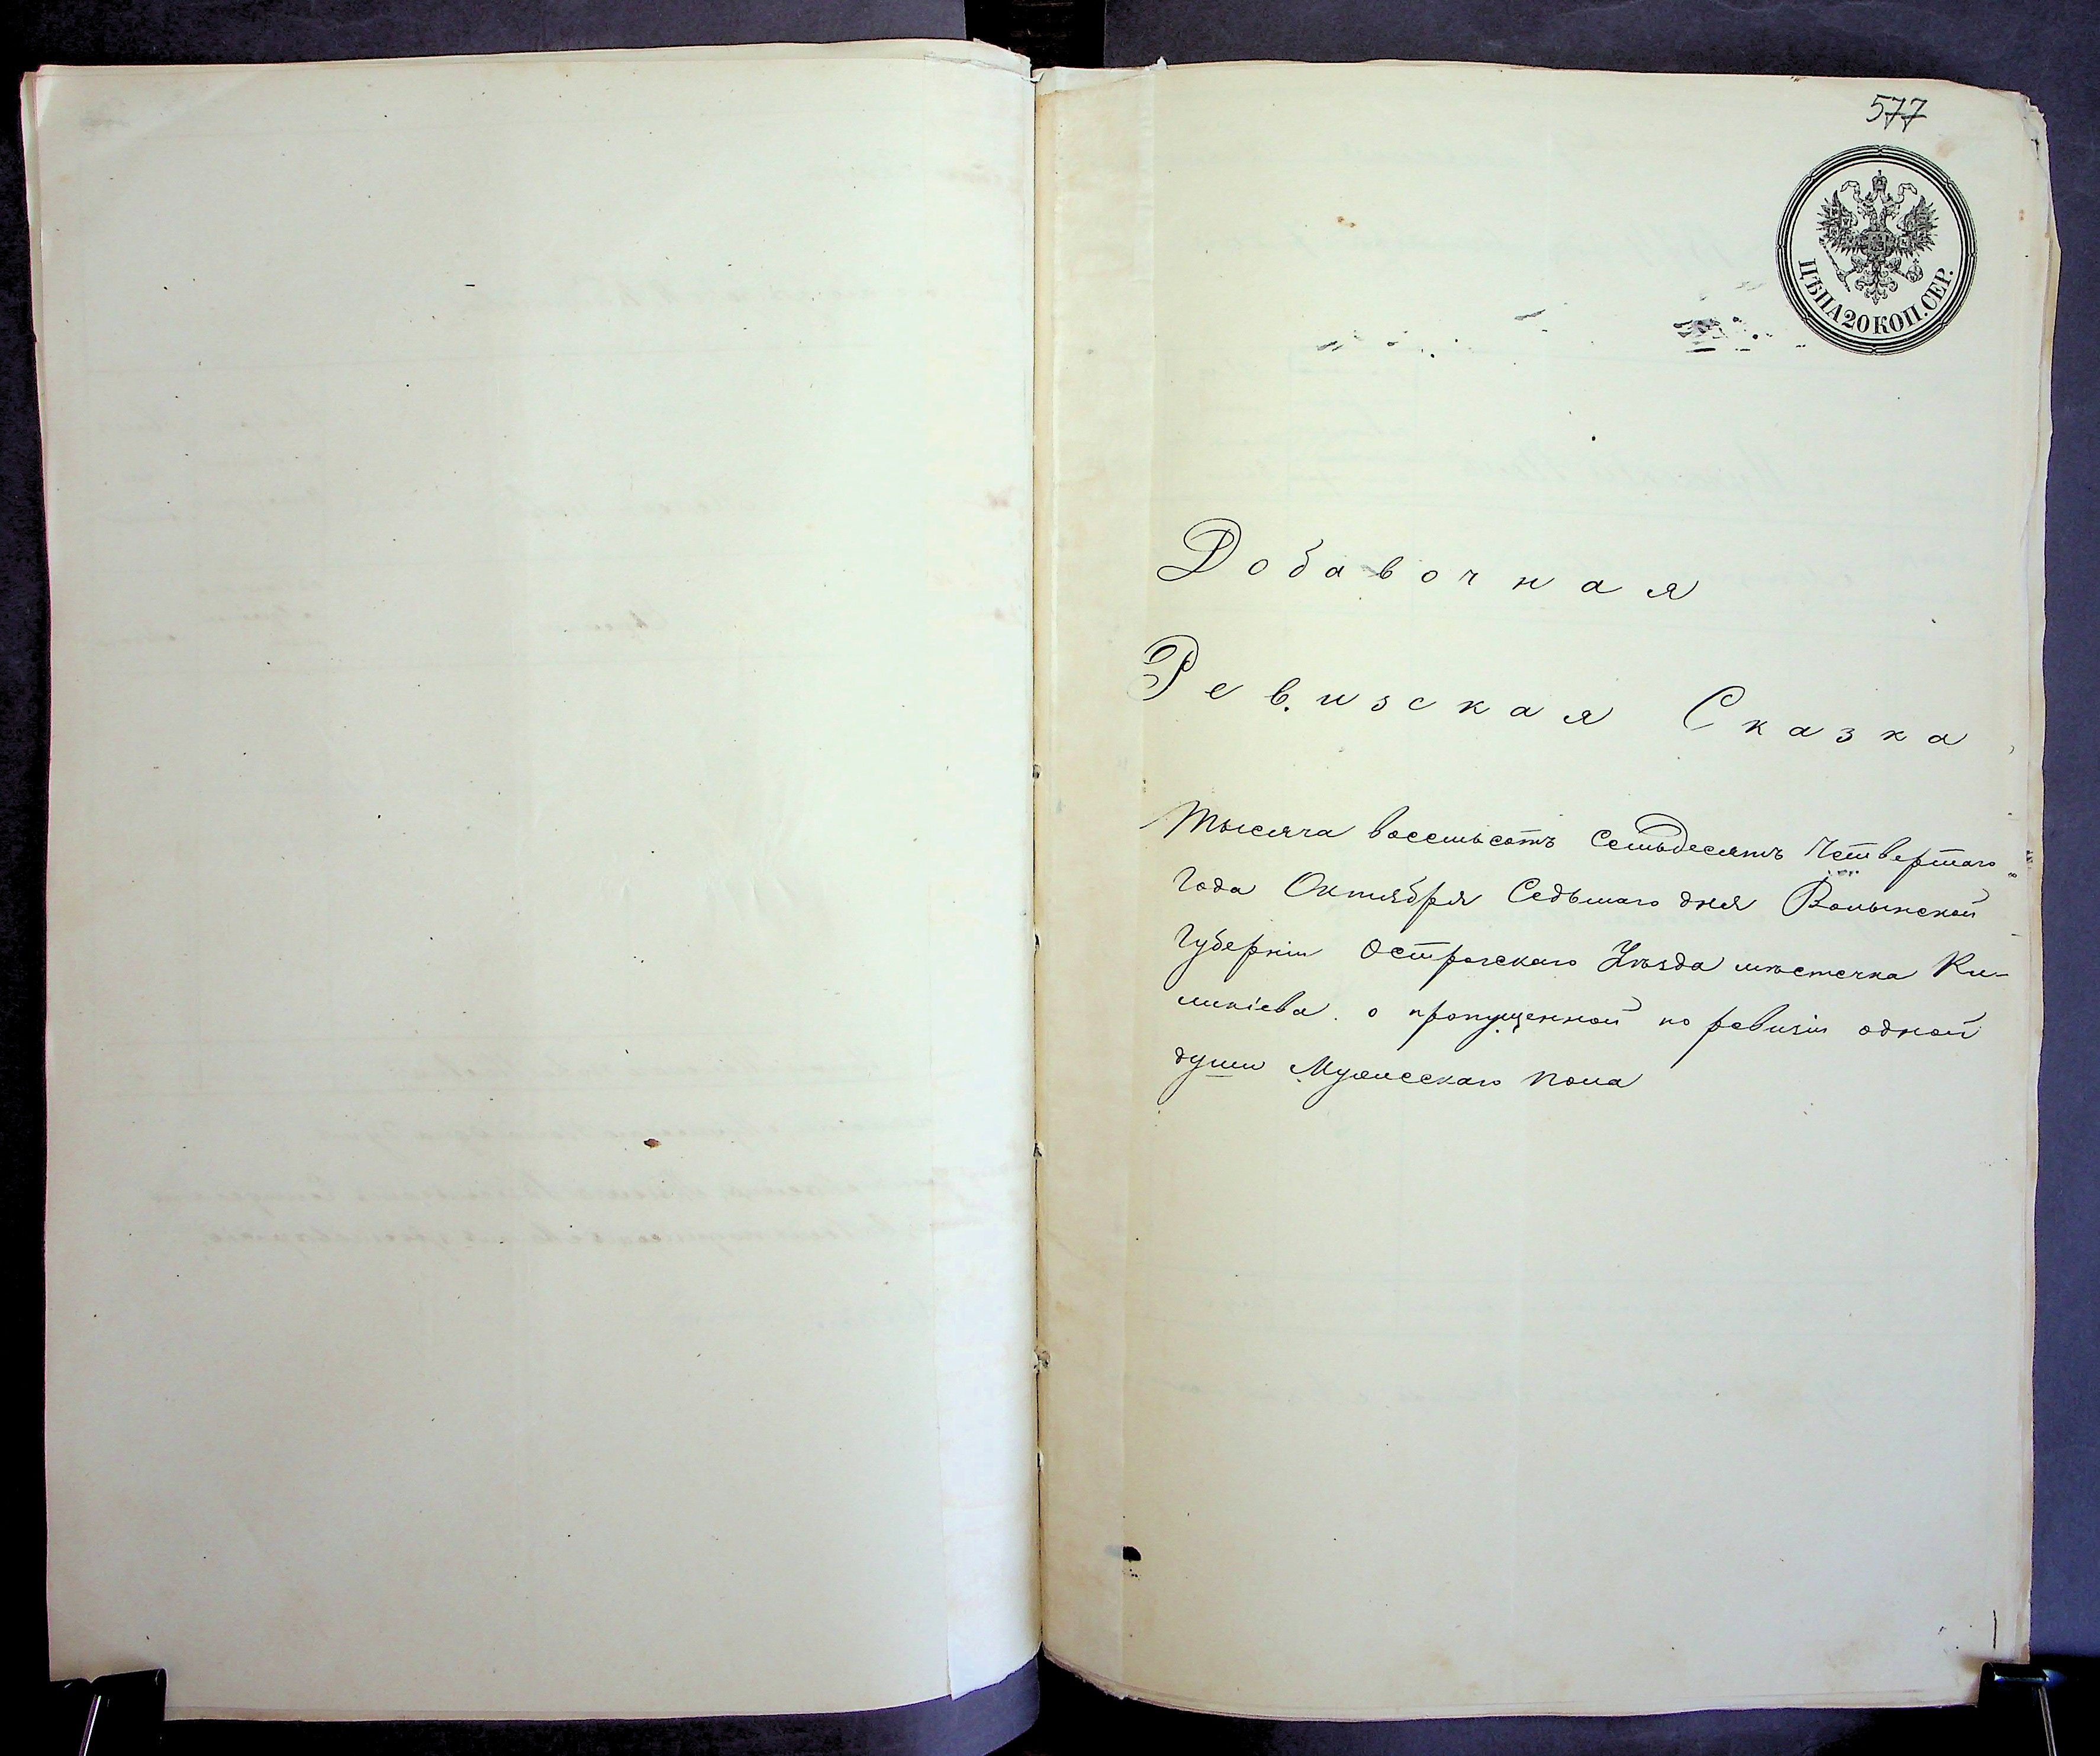 577
ЦѢНА 20 КОП. СЕР.
Добавочная
Ревизская Сказка
Тысяча восемьсотъ Семьдесятъ Четвертаго
Года Октября Седьмаго дня Волынской
Губерніи Острогскаго Уѣзда мѣстечка Ку-
микіева о пропущенной по ревизіи одной
души Мужесскаго пола